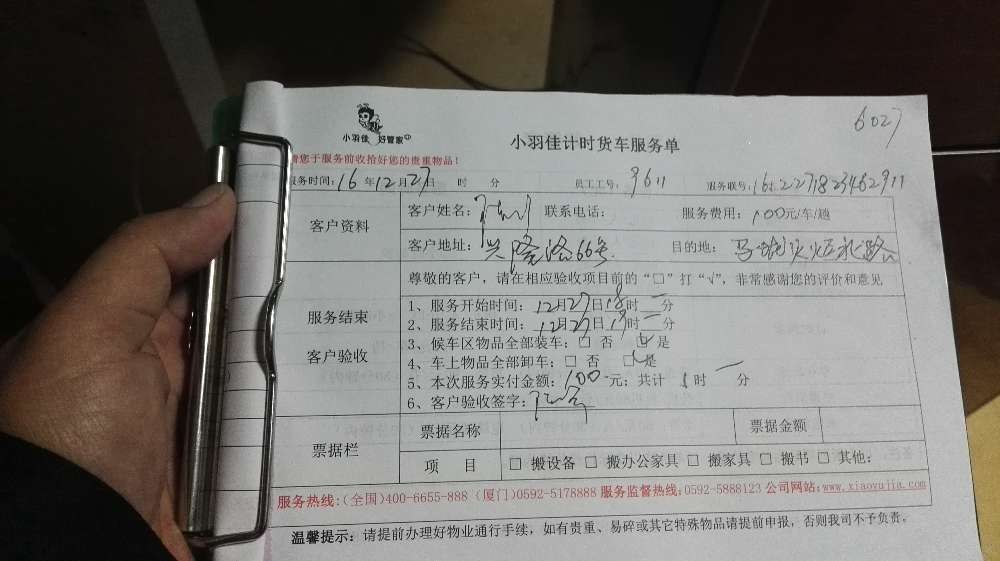 6027
小羽佳 好管家
小羽佳计时货车服务单
请您于服务前收拾好您的贵重物品！
服务时间：16年12月27日 时 分 员工工号：9611 服务联号：
客户资料 客户姓名： 联系电话： 服务费用：100元/车/趟
客户地址：兴隆路66号 目的地：
尊敬的客户，请在相应验收项目前的“□”打“√”，非常感谢您的评价和意见
服务结束
客户验收
1、服务开始时间：12月27日18时一分
2、服务结束时间：12月27日19时一分
3、候车区物品全部装车：□ 否 □是
4、车上物品全部卸车：□ 否 □是
5、本次服务实付金额：100元；共计 1时 一 分
6、客户验收签字：
票据栏 票据名称 票据金额
项 目 □ 搬设备 □ 搬办公家具 □ 搬家具 □ 搬书 □ 其他：
服务热线：(全国)400-6655-888 (厦门)0592-5178888 服务监督热线：0592-5888123 公司网站：www.xiaoyujia.com
温馨提示：请提前办理好物业通行手续，如有贵重、易碎或其它特殊物品请提前申报，否则我司不予负责。